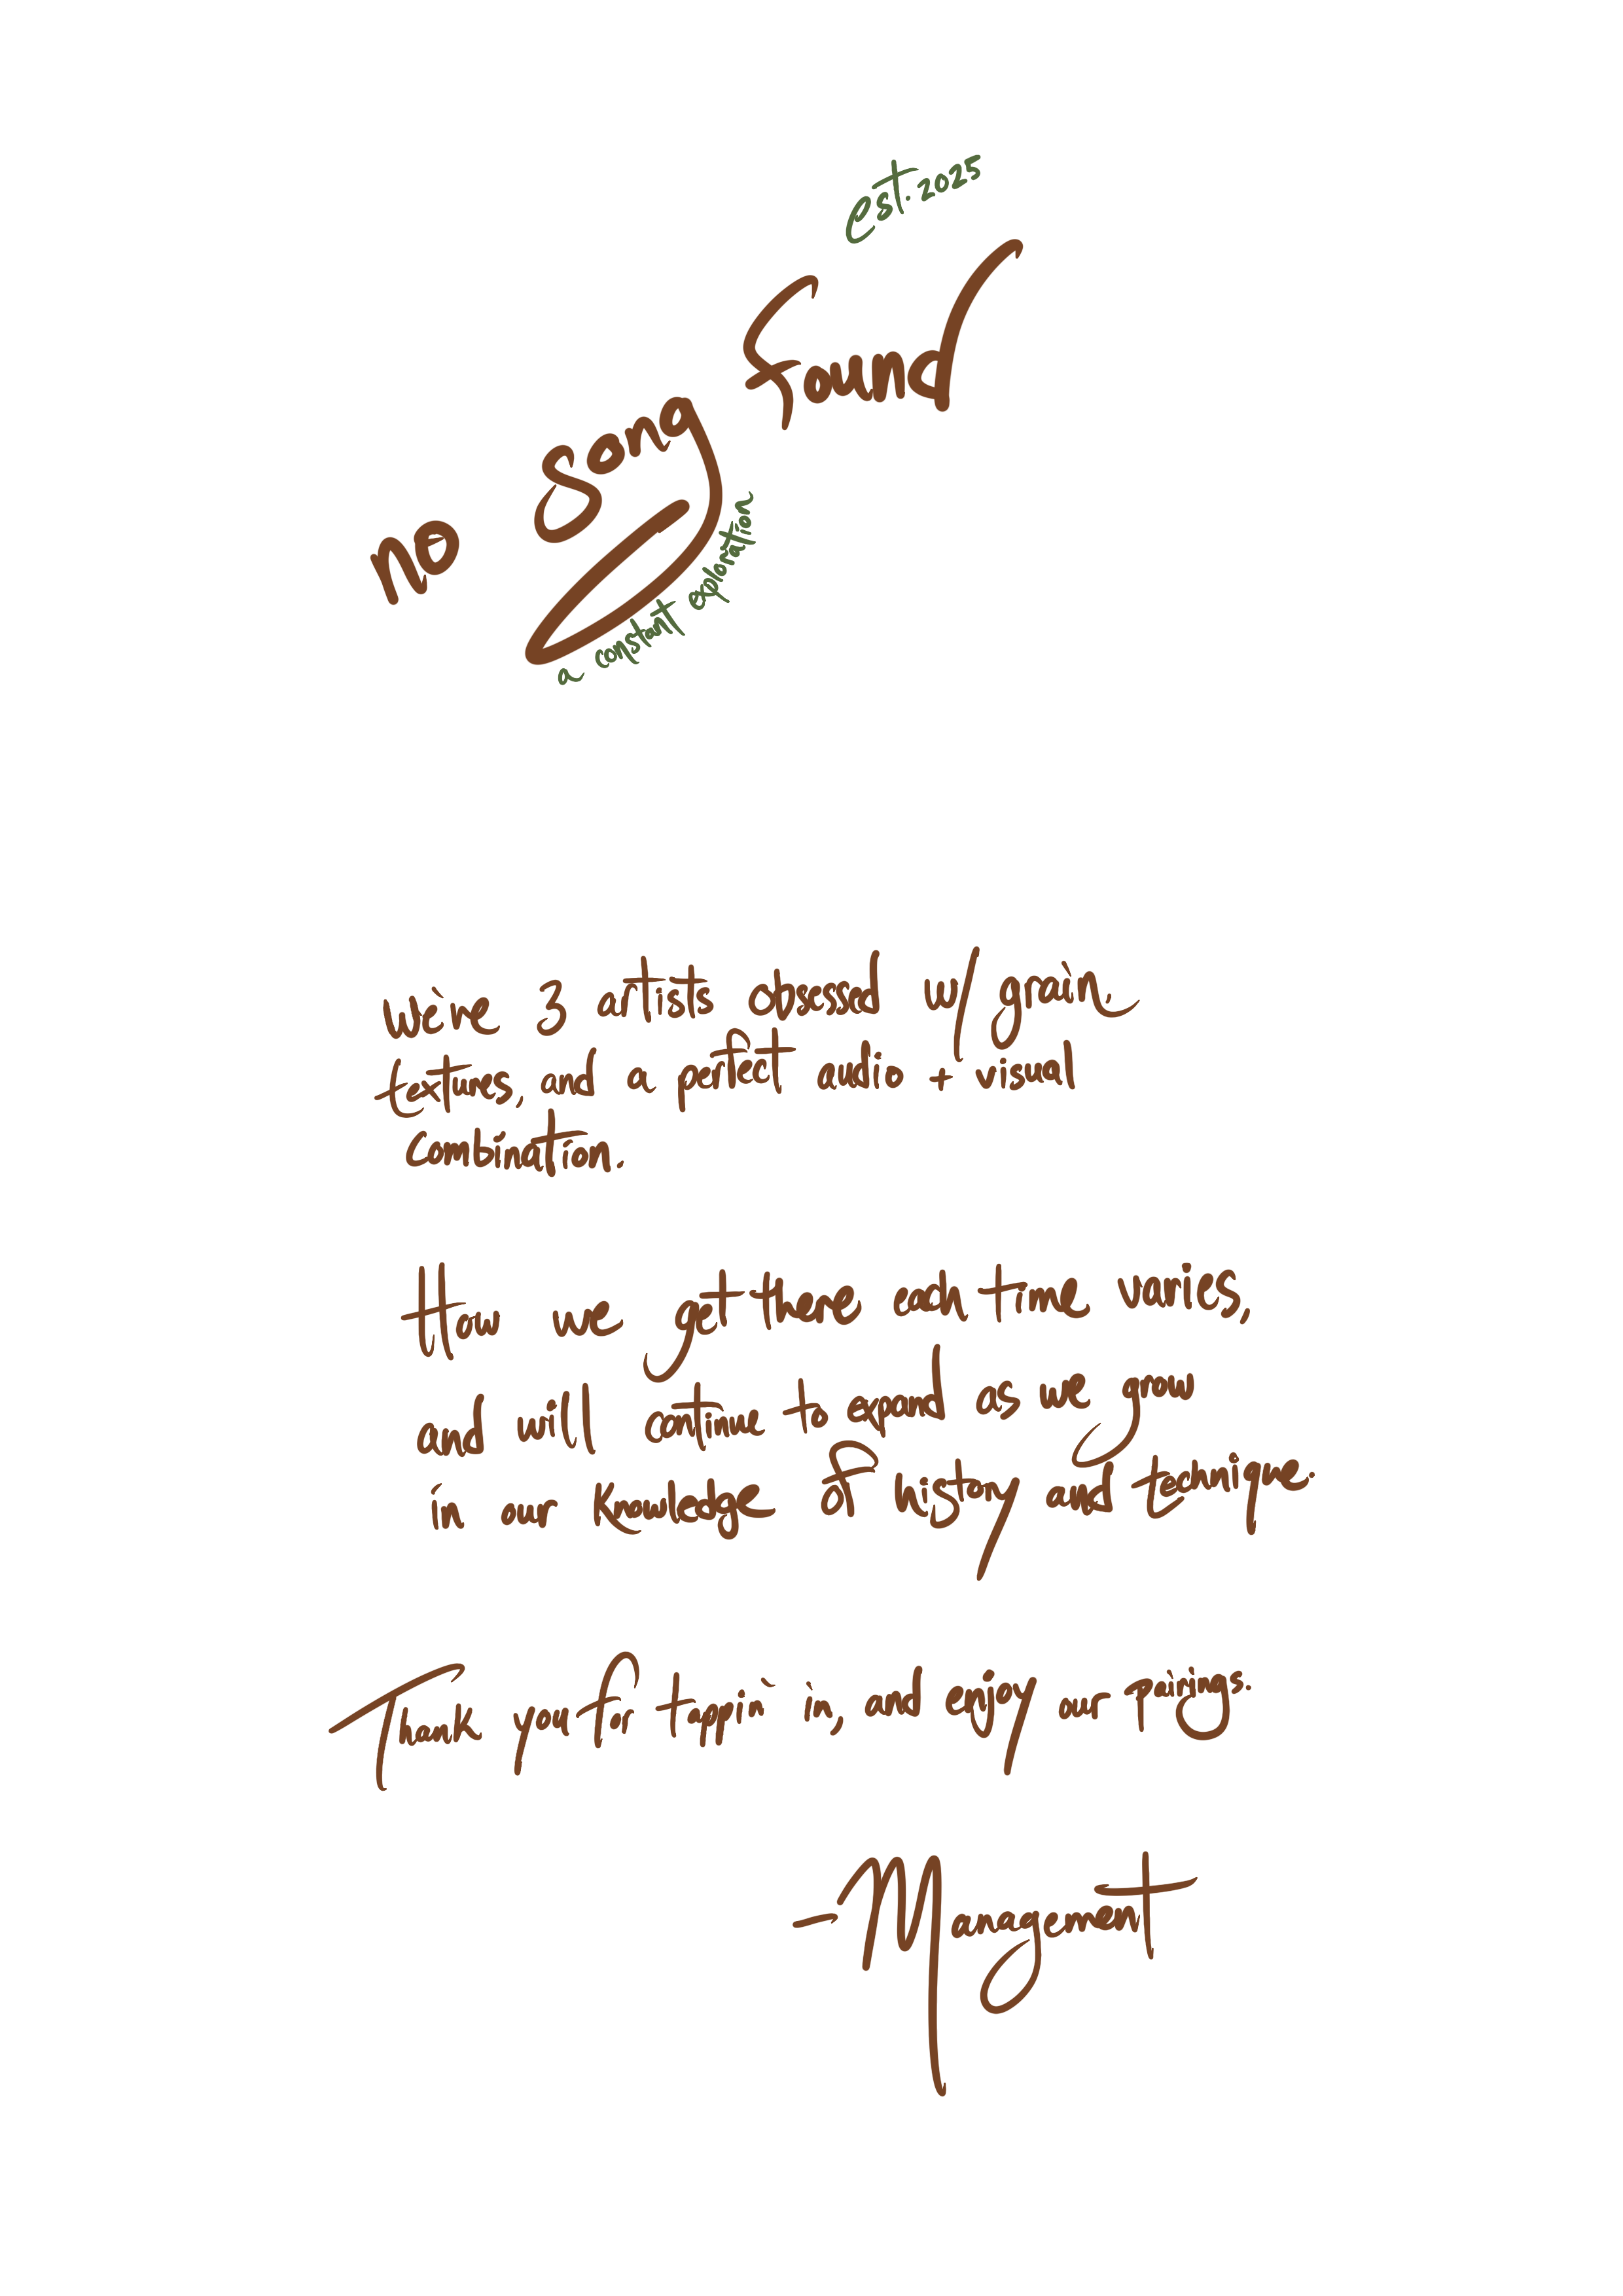 est. 2025
No Song Found
a constant exploration
We're 3 artists obsessed w/ grain,
textures, and a perfect audio + visual
combination.
How we get there each time varies,
and will continue to expand as we grow
in our knowledge of history and technique.
Thank you for tappin' in, and enjoy our pairings.
-Management